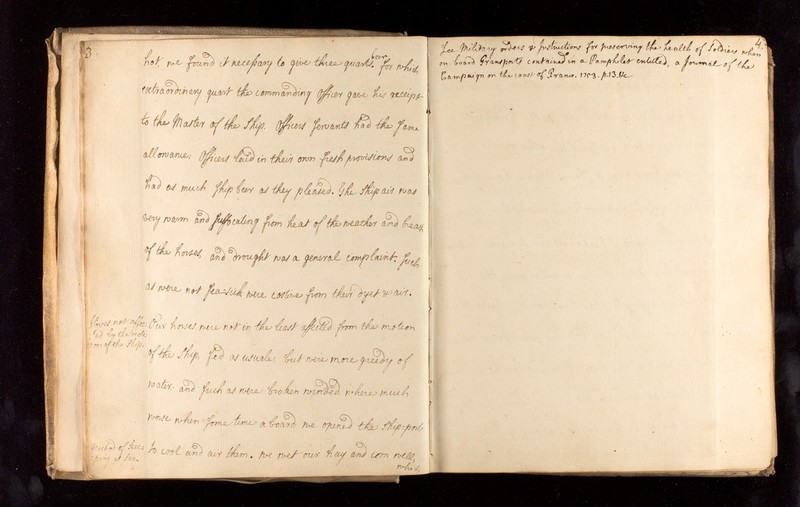 3
hot we found it necessary to give three quarts beer. for which
extraordinary quart the commanding Officer gave his receipt
to the Master of the Ship. Officers Servants had the same
allowance: Officers laid in their own fresh provisions and
had as much Ship beer as they pleased. The Ship air was
very warm and suffocating from heat of the weather and breath
of the horses, and drought was a general complaint. Such
as were not sea-sick were costive from their dyet & air.
Horses not affec
ted by the mot
ion of the Ship.
Our horses were not in the least affected from the motion
of the Ship, fed as usuale: but were more greedy of
water. and such as were broken winded where much
worse when some time aboard we opened the Ship-ports
of
at Sea.
to cool and air them. we wet our hay and corn well,
4.
See Military orders & Instructions for preserving the health of Soldiers when
on board Transports contained in a Pamphlet entitled, a Journal of the
Campaign on the coast of France. p. 13. &c